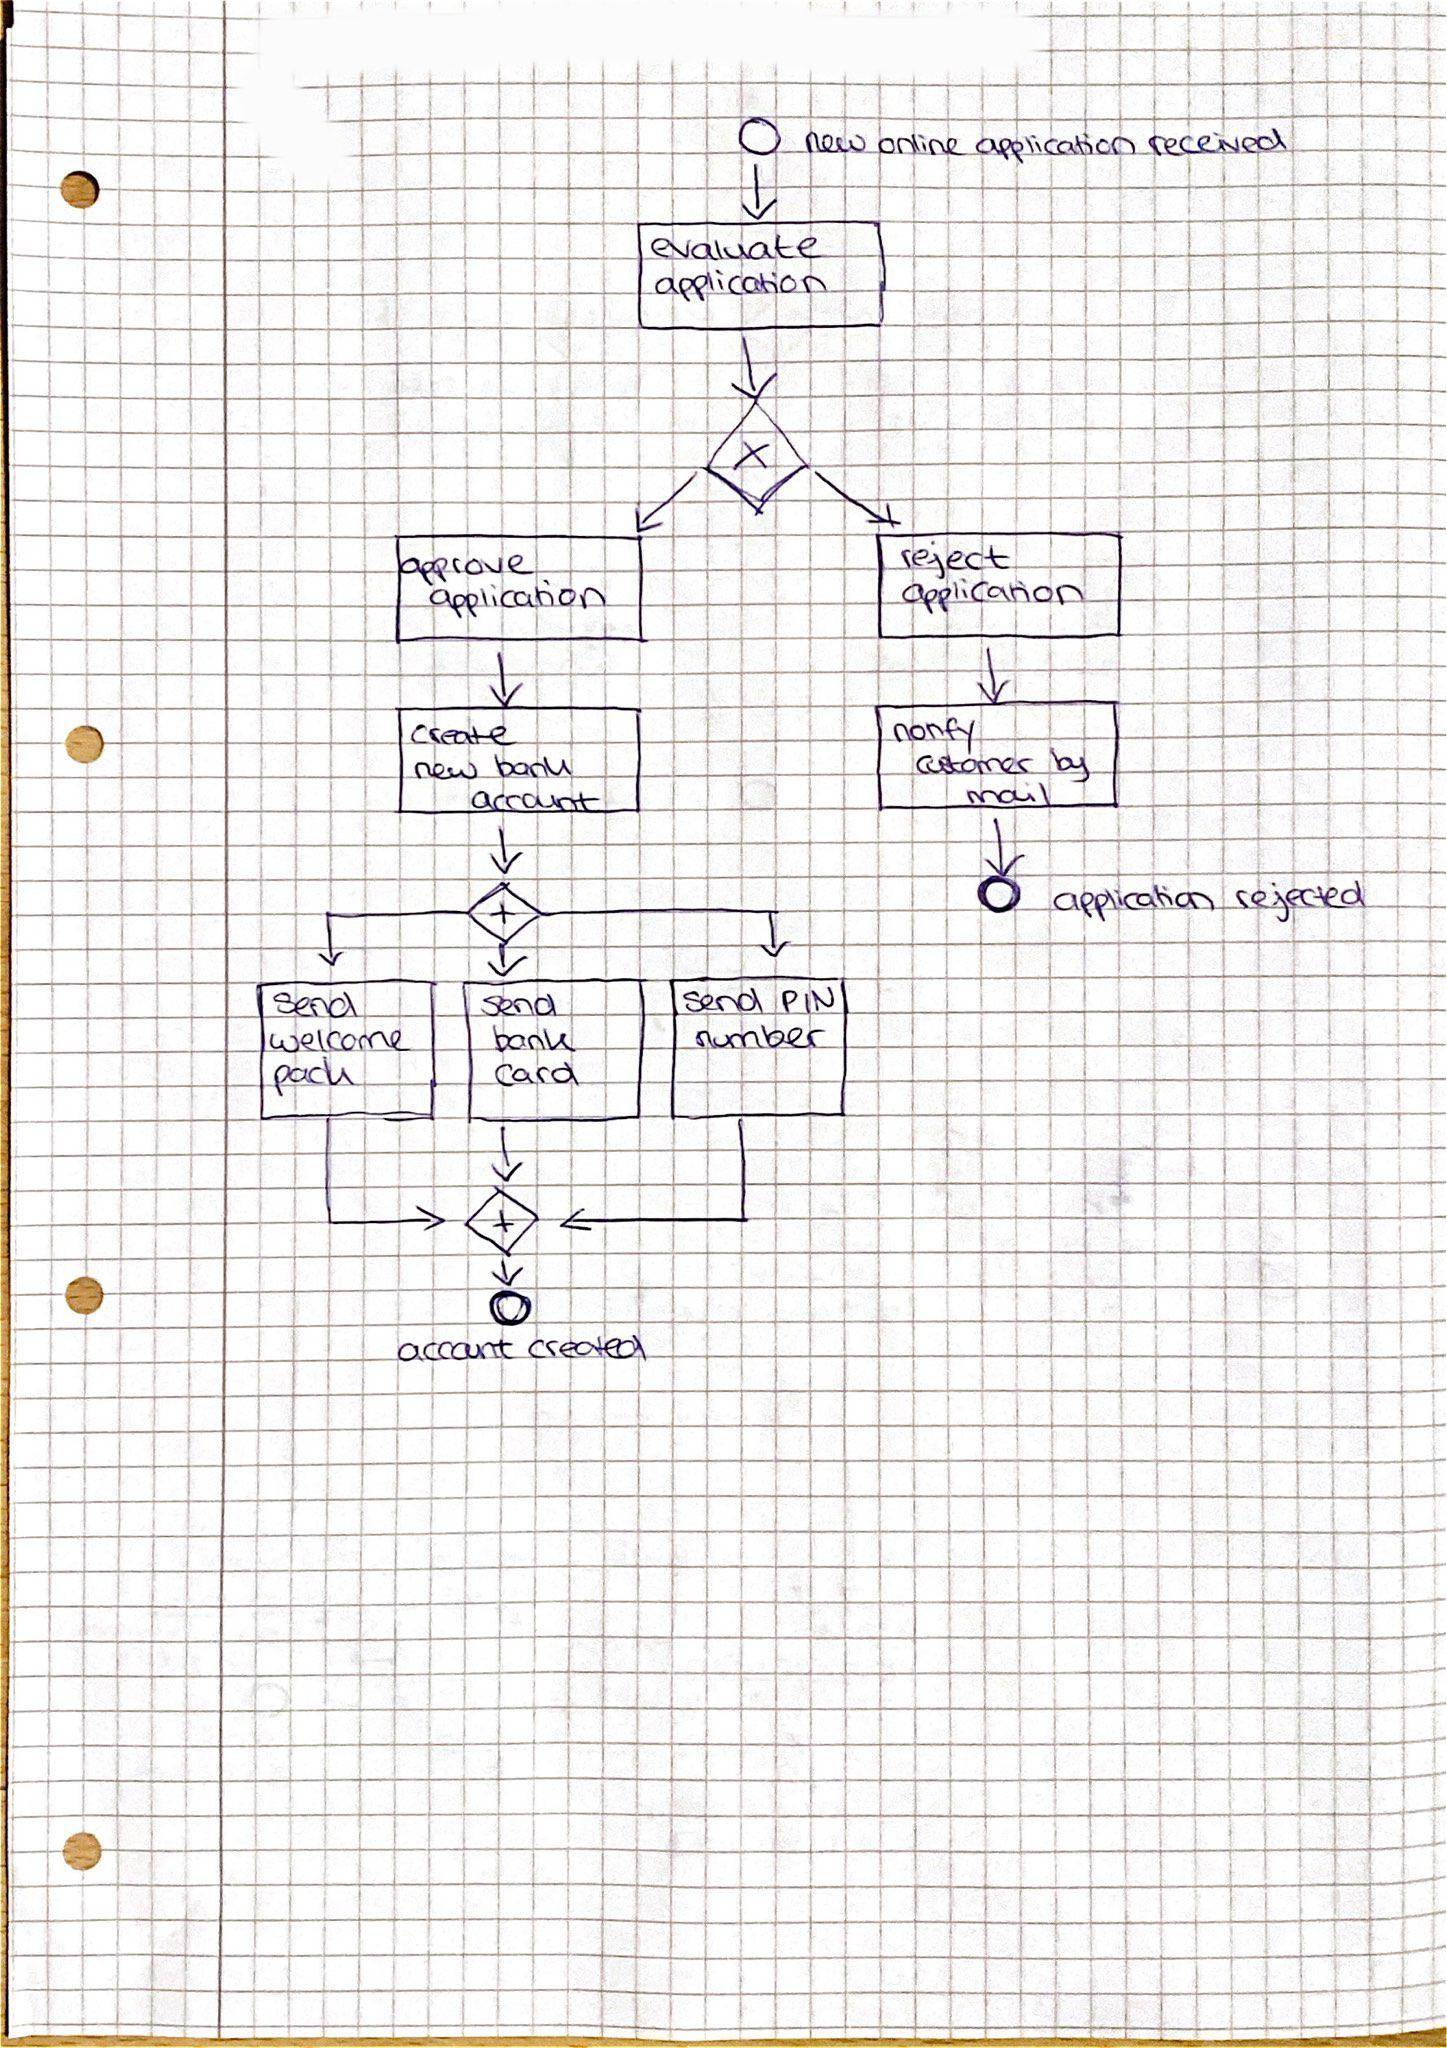 new online application received
evaluate
application
X
approve
application
reject
application
create
new bank
account
notify
customer by
mail
+
application rejected
send
welcome
pack
send
bank
card
send PIN
number
+
account created